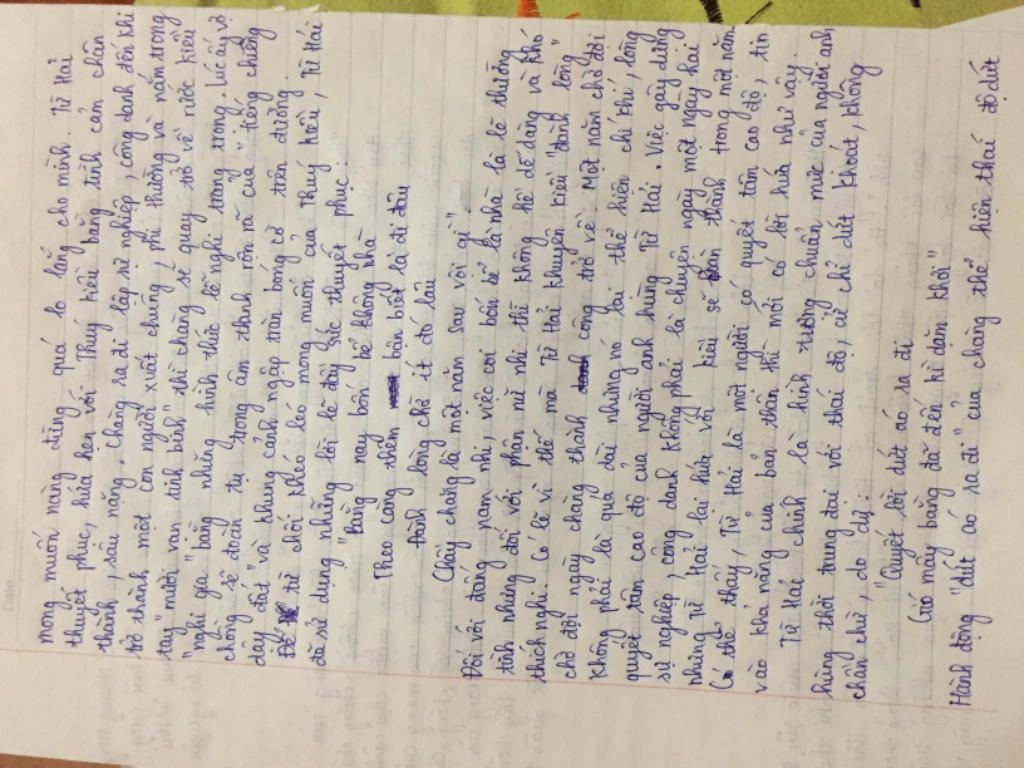 Date
mong muốn nàng đừng quá lo lắng cho mình. Từ Hải
thuyết phục, hứa hẹn với Thuý Kiều bằng tình cảm chân
thành, sâu nặng. Chàng ra đi lập sự nghiệp, công danh đến khi
trở thành một con người xuất chúng, phi thường và nắm trong
tay "mười vạn tinh binh" thì chàng sẽ quay trở về rước Kiều
"nghi gia" bằng những hình thức lễ nghi trang trọng. Lúc ấy vợ
chồng sẽ đoàn tụ trong âm thanh rộn rã của "tiếng chiêng
dậy đất" và khung cảnh ngập tràn bóng cờ trên đường.
Để từ chối khéo léo mong muốn của Thuý Kiều, Từ Hải
đã sử dụng những lời lẽ đầy sức thuyết phục:
"Bằng nay bốn bể không nhà
Theo càng thêm bận biết là đi đâu
Đành lòng chờ ít đó lâu
Chầy chăng là một năm sau vội gì".
Đối với đấng nam nhi, việc coi bốn bể là nhà là lẽ thường
tình nhưng đối với phận nữ nhi thì không hề dễ dàng và khó
thích nghi. Có lẽ vì thế mà Từ Hải khuyên Kiều "đành lòng"
chờ đợi ngày chàng thành công trở về. Một năm chờ đợi
không phải là quá dài nhưng nó lại thể hiện chí khí, lòng
quyết tâm cao độ của người anh hùng Từ Hải. Việc gây dựng
sự nghiệp, công danh không phải là chuyện ngày một ngày hai
nhưng Từ Hải lại hứa với Kiều sẽ thành trong một năm
Có thể thấy, Từ Hải là một người có quyết tâm cao độ, tin
vào khả năng của bản thân thì mới có lời hứa như vậy.
Từ Hải chính là hình tượng chuẩn mực của người anh
hùng thời trung đại với thái độ, cử chỉ dứt khoát, không
chần chừ, do dự:
"Quyết lời dứt áo ra đi
Gió mây bằng đã đến kì dặm khơi"
Hành động "dứt áo ra đi" của chàng thể hiện thái độ dứt